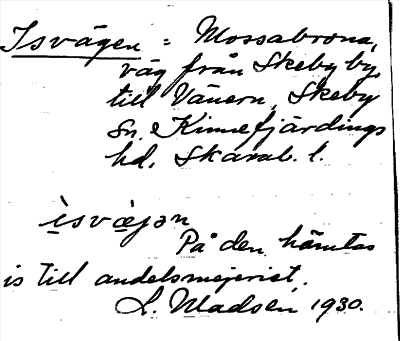 Isvägen = Mossabrona,
väg från Skeby by,
till Vänern, Skeby
Sn. Kinnefjärdings
hd, Skarab. l.
ìsvæjən
På den hämtas
is till andelsmejeriet.
L. Madsén 1930.